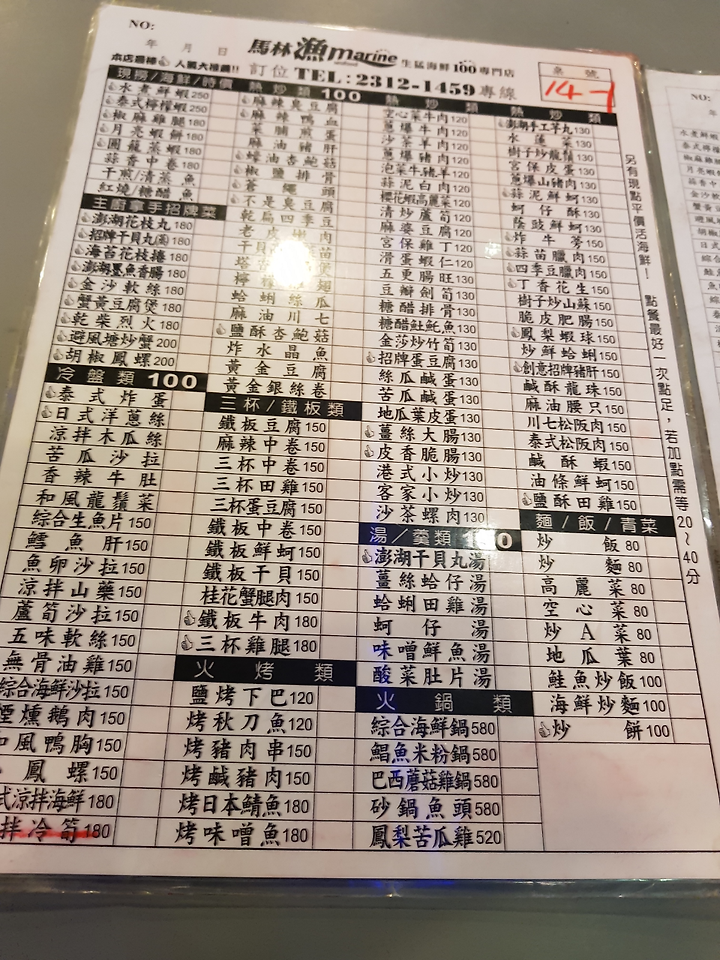 NO:
年 月 日
馬林漁 marine 生猛海鮮100專門店
本店最棒 人氣大推薦!!
訂位 TEL:2312-1459 專線
桌號
14-1
現撈/海鮮/時價
水煮鮮蝦250
泰式檸檬蝦250
椒麻雞腿180
月亮蝦餅180
圓籠蒸蝦180
蒜香中卷180
干煎/清蒸魚
紅燒/糖醋魚
主廚拿手招牌菜
澎湖花枝丸180
招牌干貝丸(圓)180
海苔花枝捲180
澎湖墨魚香腸180
金沙軟絲180
蟹黃豆腐煲180
乾柴烈火180
避風塘炒蟹200
胡椒鳳螺200
冷盤類 100
泰式炸蛋
日式洋蔥絲
涼拌木瓜絲
苦瓜沙拉
香辣牛肚
和風龍鬚菜
綜合生魚片150
鱈魚肝150
魚卵沙拉150
涼拌山藥150
蘆筍沙拉150
五味軟絲150
無骨油雞150
綜合海鮮沙拉150
煙燻鵝肉150
和風鴨胸150
鳳螺150
式涼拌海鮮180
拌冷筍180
熱炒類 100
麻辣臭豆腐
麻辣鴨血
菜脯煎蛋
麻油豬肝
蠔油杏鮑菇
椒鹽排骨
蒼蠅頭
不是臭豆腐
乾扁四季豆
老皮嫩肉
干貝
塔
檸檬
蛤蜊絲瓜
麻油川七
鹽酥杏鮑菇
炸水晶魚
黃金豆腐
黃金銀絲卷
三杯/鐵板類
鐵板豆腐150
麻辣中卷150
三杯中卷150
三杯田雞150
三杯蛋豆腐150
鐵板中卷150
鐵板鮮蚵150
鐵板干貝150
桂花蟹腿肉150
鐵板牛肉180
三杯雞腿180
火烤類
鹽烤下巴120
烤秋刀魚120
烤豬肉串150
烤鹹豬肉150
烤日本鯖魚180
烤味噌魚180
熱炒類
空心菜牛肉120
蔥爆牛肉120
沙茶羊肉120
蔥爆豬肉120
泡菜牛豬羊120
蒜泥白肉120
櫻花蝦高麗菜120
清炒蘆筍120
麻婆豆腐120
宮保雞丁120
滑蛋蝦仁120
五更腸旺130
豆瓣劍筍130
糖醋排骨130
糖醋䰾魠魚130
金莎炒竹筍130
招牌蛋豆腐130
絲瓜鹹蛋130
苦瓜鹹蛋130
地瓜葉皮蛋130
薑絲大腸130
皮香脆腸130
港式小炒130
客家小炒130
沙茶螺肉130
湯/羹類 100
澎湖干貝丸湯
薑絲蛤仔湯
蛤蜊田雞湯
蚵仔湯
味噌鮮魚湯
酸菜肚片湯
火鍋類
綜合海鮮鍋580
鯧魚米粉鍋580
巴西蘑菇雞鍋580
砂鍋魚頭580
鳳梨苦瓜雞520
熱炒類
澎湖手工羊丸130
水蓮菜130
樹子炒龍鬚130
宮保皮蛋130
蔥爆山豬肉130
蒜泥鮮蚵130
蚵仔酥130
蔭豉鮮蚵130
炸牛蒡150
蒜苗臘肉150
四季豆臘肉150
丁香花生150
樹子炒山蘇150
脆皮肥腸150
鳳梨蝦球150
炒鮮蛤蜊150
創意招牌豬肝150
鹹酥龍珠150
麻油腰只150
川七松阪肉150
泰式松阪肉150
鹹酥蝦150
油條鮮蚵150
鹽酥田雞150
麵/飯/青菜
炒飯80
炒麵80
高麗菜80
空心菜80
炒A菜80
地瓜葉80
鮭魚炒飯100
海鮮炒麵100
炒餅100
另有現點平價活海鮮！
點餐最好一次點足，若加點需等20~40分
NO: